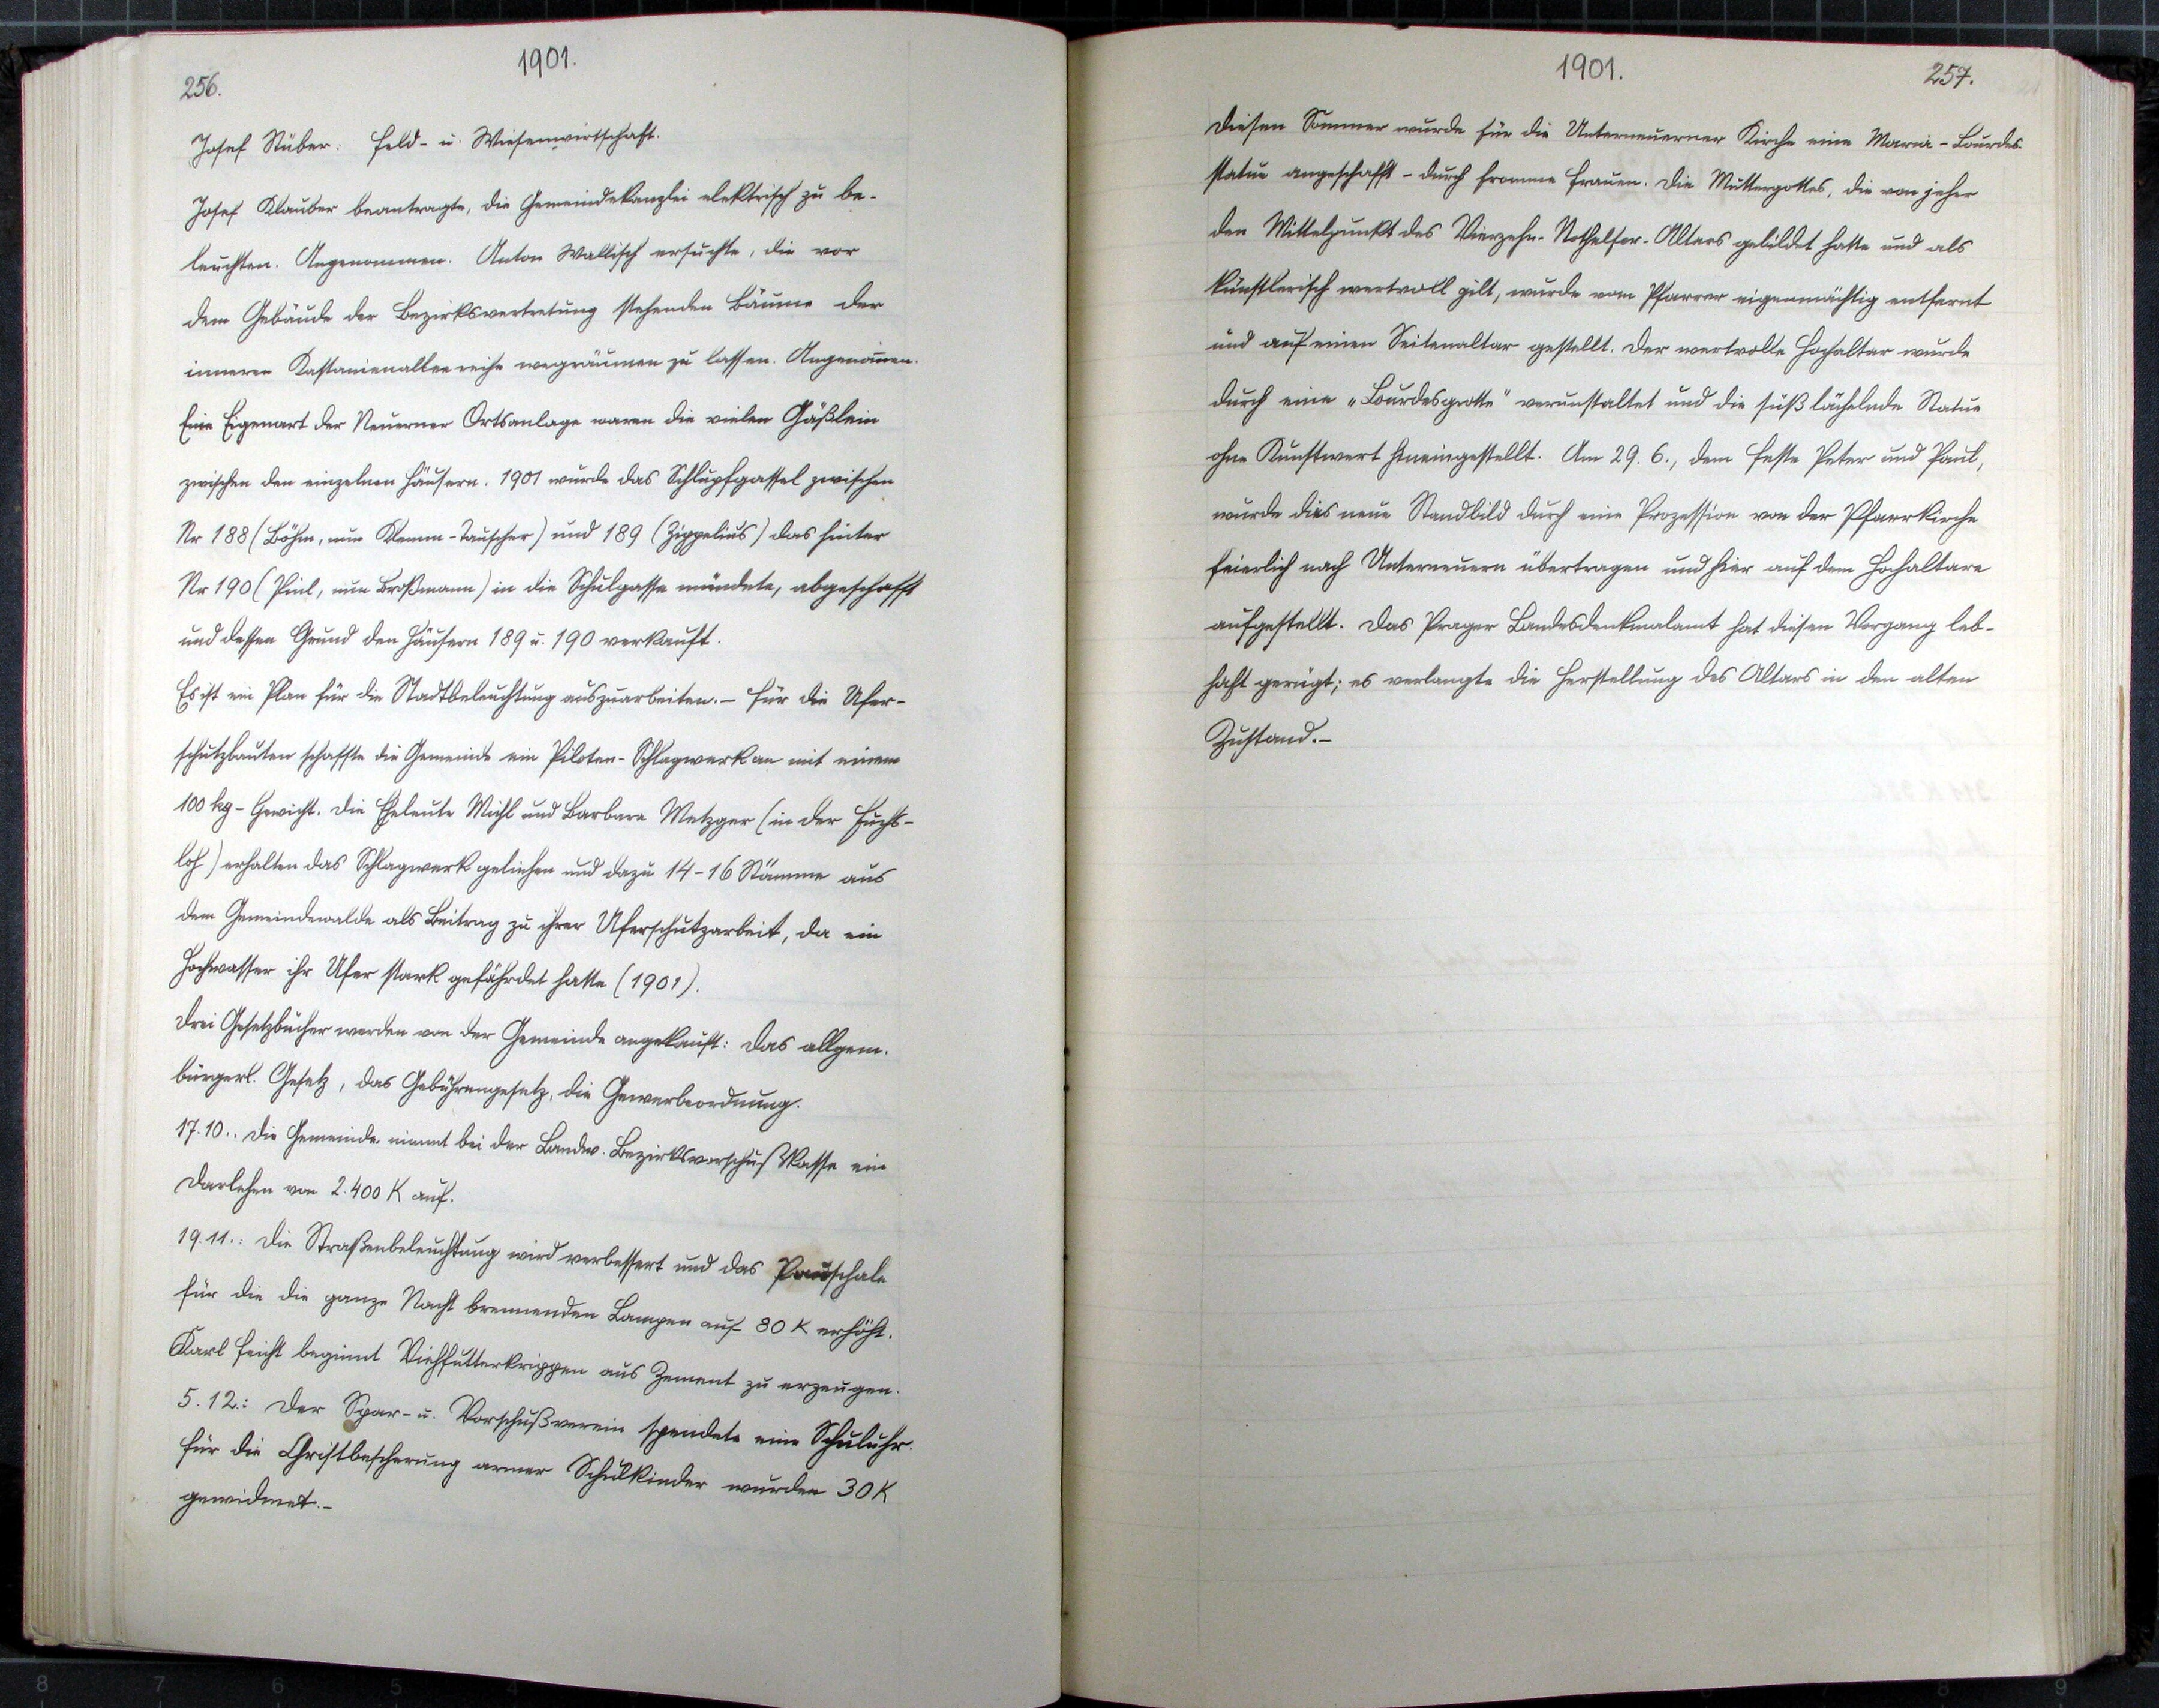 256.
1901.
Josef Stüber: Feld- u. Wiesenwirtschaft.
Josef Klauber beantragte, die Gemeindekanzlei elektrisch zu be-
leuchten. Angenommen. Anton Wallisch ersuchte, die vor
dem Gebäude der Bezirksvertretung stehenden Bäume der
inneren Kastanienalleereihe wegräumen zu lassen. Angenom̄en.
Eine Eigenart der Neuerner Ortsanlage waren die vielen Gäßlein
zwischen den einzelnen Häusern. 1901 wurde das Schlupfgassel zwischen
Nr 188 (Böhm, nun Klemm-Tauscher) und 189 (Zippelius) das hinter
Nr 190 (Pinl, nun Broßmann) in die Schulgasse mündete, abgeschafft
und dessen Grund den Häusern 189 u. 190 verkauft.
Es ist ein Plan für die Stadtbeleuchtung auszuarbeiten. – Für die Ufer-
schutzbauten schaffte die Gemeinde ein Piloten-Schlagwerk an mit einem
100 kg-Gewicht. Die Eheleute Michl und Barbara Metzger (in der Fuchs-
loh) erhalten das Schlagwerk geliehen und dazu 14-16 Stämme aus
dem Gemeindewalde als Beitrag zu ihrer Uferschutzarbeit, da ein
Hochwasser ihr Ufer stark gefährdet hatte (1901).
Drei Gesetzbücher werden von der Gemeinde angekauft: Das allgem.
bürgerl. Gesetz, das Gebührengesetz, die Gewerbeordnung.
17.10.. Die Gemeinde nimmt bei der Landw. Bezirksvorschußkasse ein
Darlehen von 2.400 K auf.
19.11.: Die Straßenbeleuchtung wird verbessert und das Pauschale
für die die ganze Nacht brennenden Lampen auf 80 K erhöht.
Karl Feicht beginnt Viehfutterkrippen aus Zement zu erzeugen.
5.12.: Der Spar- u. Vorschußverein spendete eine Schuluhr.
Für die Christbescherung armer Schulkinder wurden 30 K
gewidmet.–
1901.
257.
Diesen Sommer wurde für die Unterneuerner Kirche eine Maria-Lourdes-
statue angeschafft – durch fromme Frauen. Die Muttergottes, die von jeher
den Mittelpunkt des Vierzehn-Nothelfer-Altars gebildet hatte und als
künstlerisch wertvoll gilt, wurde vom Pfarrer eigenmächtig entfernt
und auf einen Seitenaltar gestellt. Der wertvolle Hochaltar wurde
durch eine „Lourdesgrotte" verunstaltet und die süß lächelnde Statue
ohne Kunstwert hineingestellt. Am 29. 6., dem Feste Peter und Paul,
wurde dies neue Standbild durch eine Prozession von der Pfarrkirche
feierlich nach Unterneuern übertragen und hier auf dem Hochaltare
aufgestellt. Das Prager Landesdenkmalamt hat diesen Vorgang leb-
haft gerügt; es verlangte die Herstellung des Altars in den alten
Zustand.–